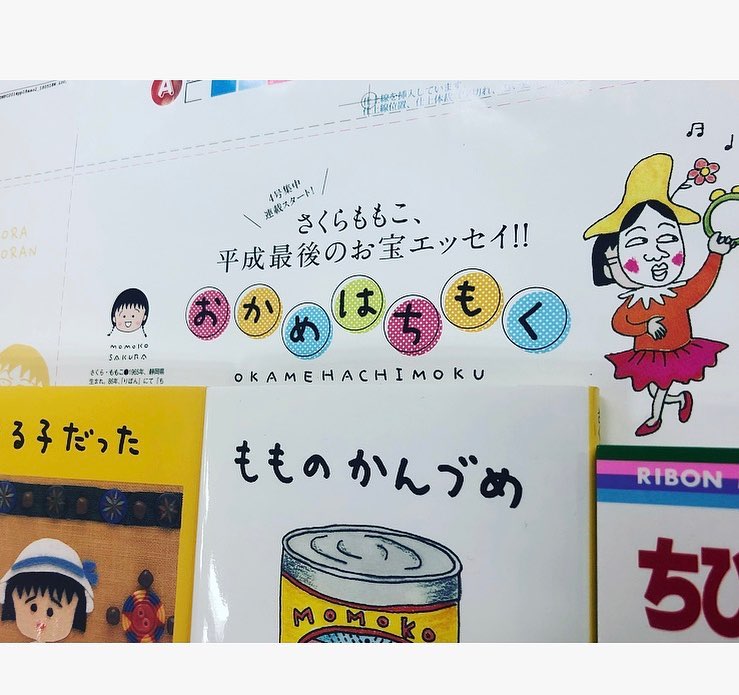 A
線を挿入しています
4号集中
連載スタート!
さくらももこ、
平成最後のお宝エッセイ!!
おかめはちもく
OKAMEHACHIMOKU
ORA
ORAN
MOMOKO
SAKURA
さくら・ももこ●1965年、静岡県
生まれ。86年、「りぼん」にて「ち
る子だった
もものかんづめ
MOMOKO
RIBON
ちひ